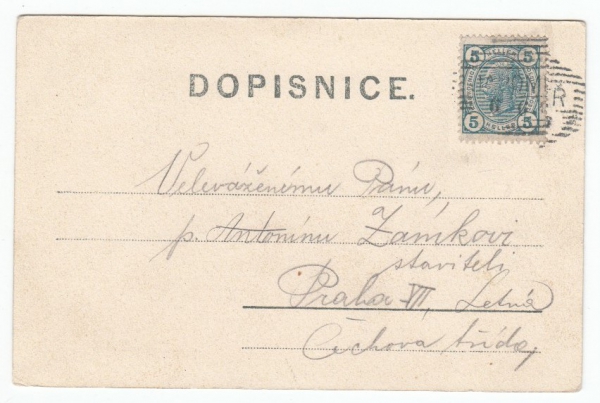 DOPISNICE.
5 HELLER 5
5 HELLER 5
Veleváženému Pánu,
p. Antonínu Zámkovi
staviteli
Praha VII, Letná
Čechova třída,